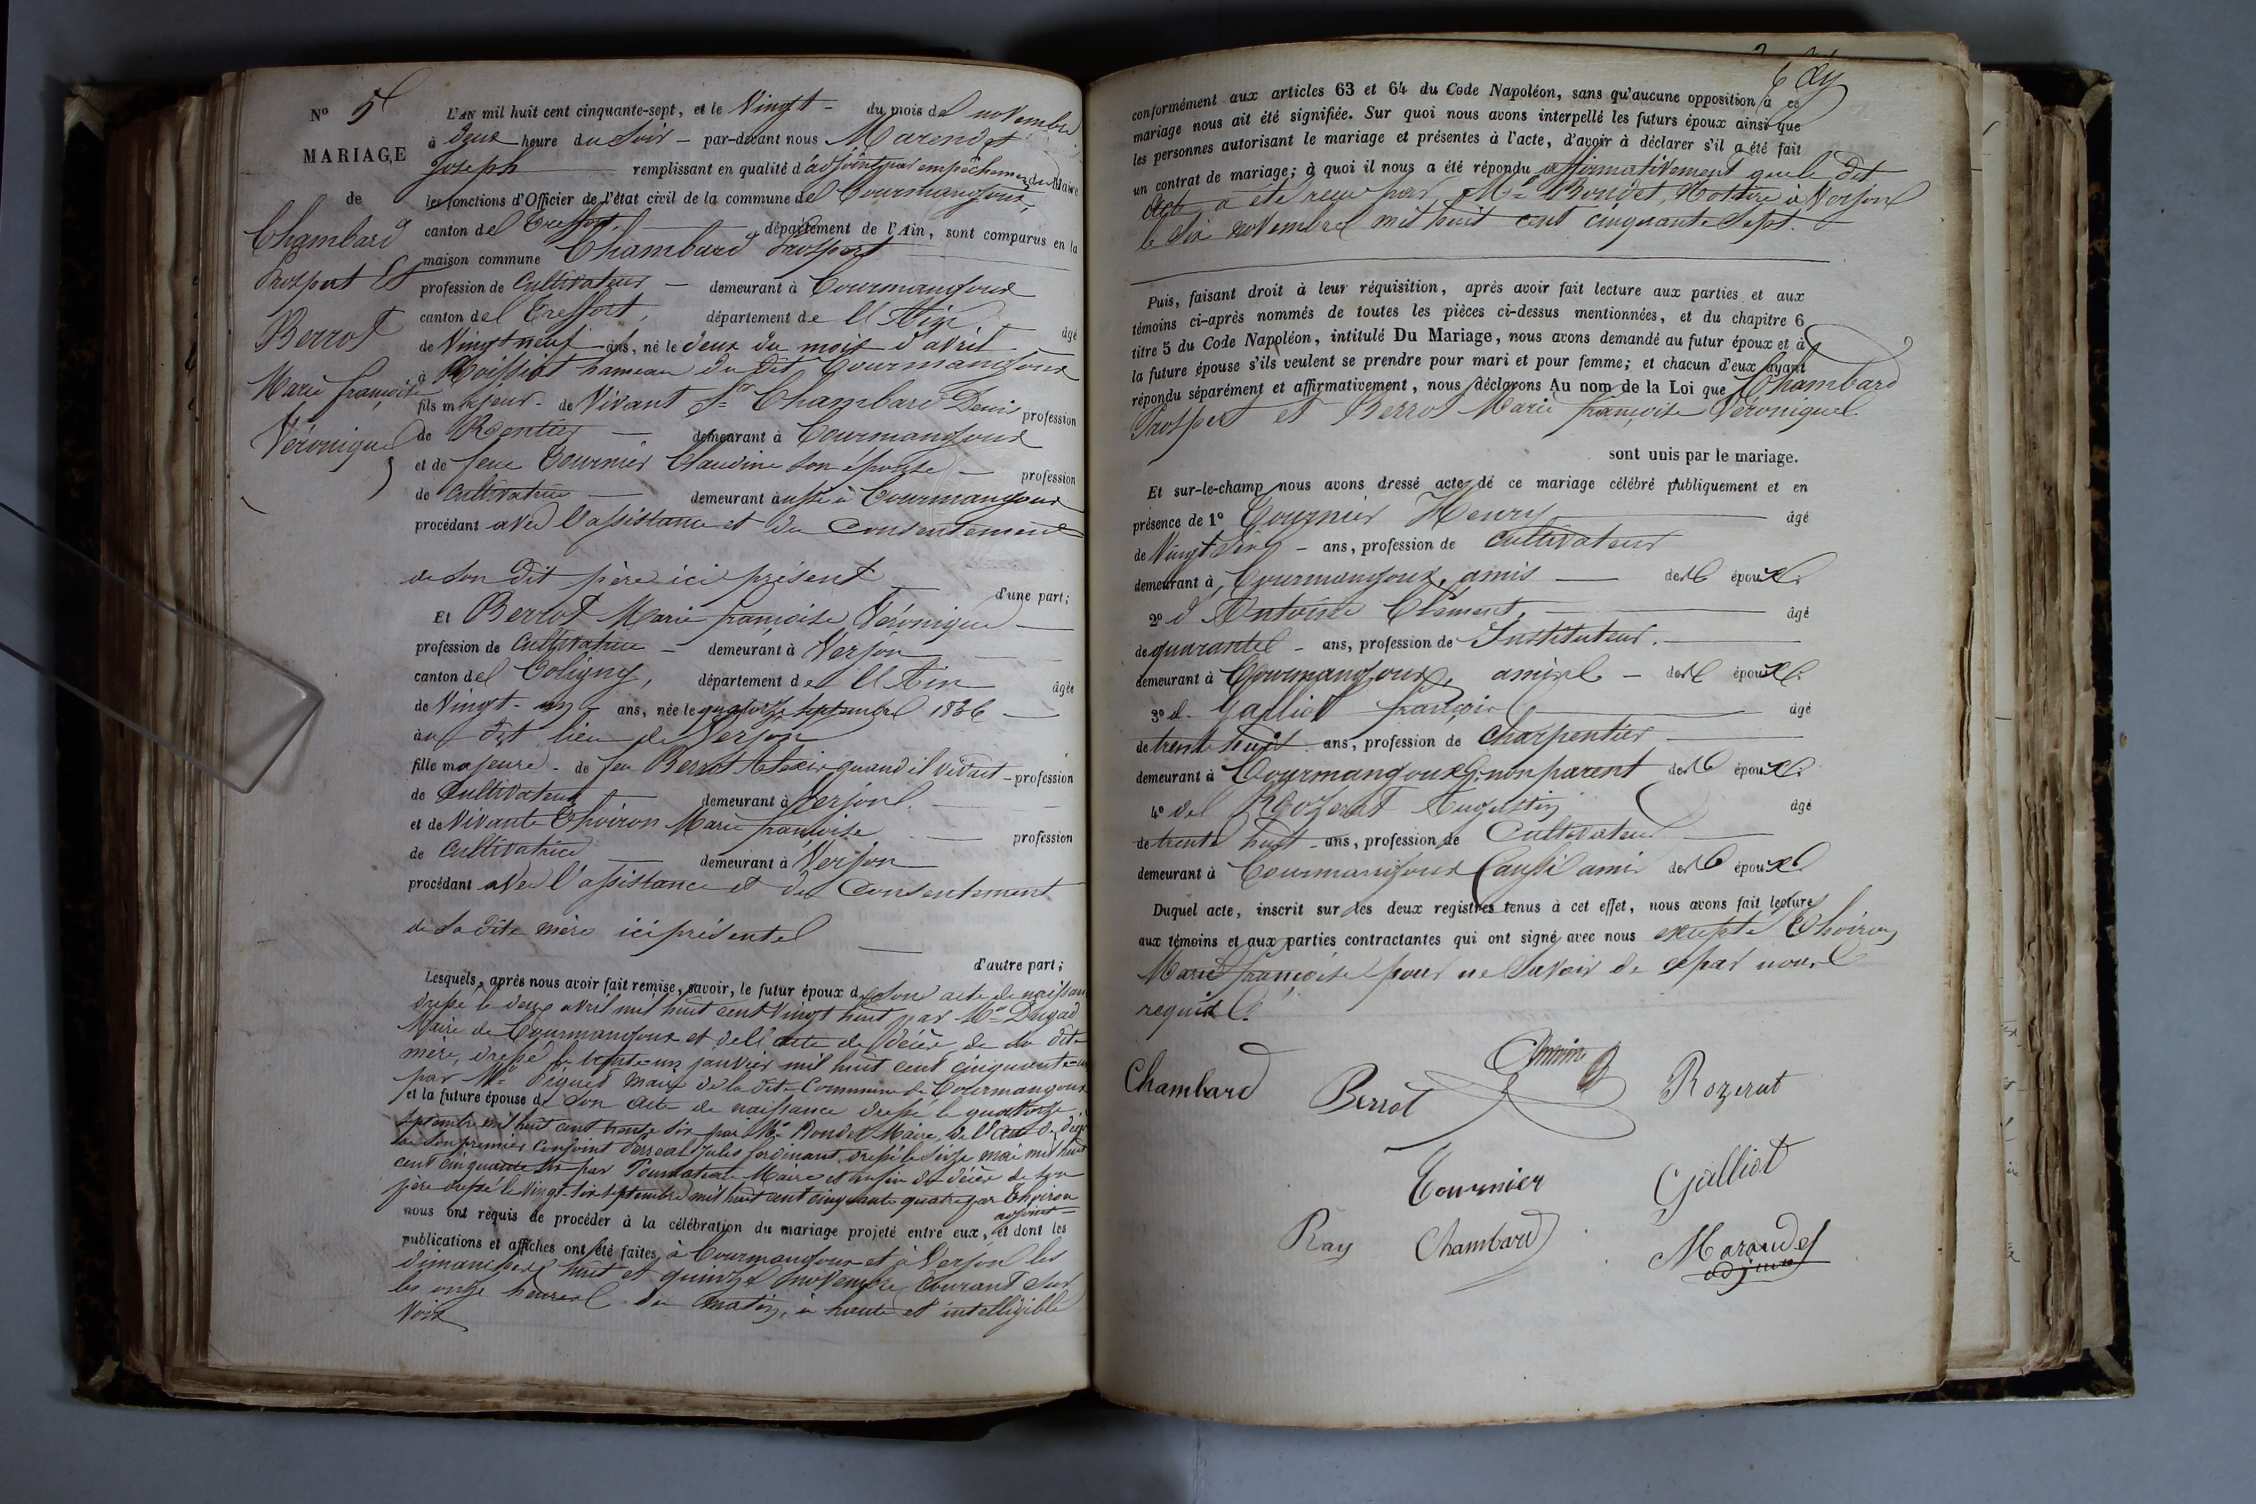 N° 5
MARIAGE
de
Chambard
Prospert Et
Berrot
Marie françoise
Véronique
L'AN mil huit cent cinquante-sept, et le Vingt - du mois de novembre
à deux heure du Soir - par-devant nous Marendet
Joseph remplissant en qualité d'adjoint par empêchement du Maire
les fonctions d'Officier de l'état civil de la commune de Courmangoux,
canton de Treffort, département de l'Ain, sont comparus en la
maison commune Chambard Prospert
profession de Cultivateur - demeurant à Courmangoux
canton de Treffort, département de l'Ain âgé
de Vingt neuf ans, né le deux du mois d'avril
à Roissiat hameau du dit Courmangoux
fils majeur - de Vivant Sr Chambard Denis profession
de Rentier - demeurant à Courmangoux
et de feue Tournier Claudine son épouse - profession
de Cultivatrice demeurant aussi à Courmangoux
procédant avec l'assistance et du consentement
de son dit père ici présent
d'une part;
Et Berrot Marie françoise Véronique
profession de Cultivatrice - demeurant à Verjon
canton de Coligny, département de l'Ain âgée
de Vingt-un ans, née le quatorze septembre 1836
au dit lieu de Verjon
fille majeure - de feu Berrot Alexis quand il vivait - profession
de Cultivateur demeurant à Verjon
et de Vivante Thoiron Marie françoise profession
de Cultivatrice demeurant à Verjon
procédant avec l'assistance et du Consentement
de Sa dite mère ici présente
d'autre part;
Lesquels, après nous avoir fait remise, savoir, le futur époux de son acte de naissance
dressé le deux avril mil huit cent vingt huit par Mr Dugad
Maire de Courmangoux et de l'acte de décès de sa dite
mère, dressé le trente-un janvier mil huit cent cinquante-un
par Mr Piquet Maire de la dite Commune de Courmangoux
et la future épouse de son acte de naissance dressé le quatorze
septembre mil huit cent trente six par Mr Rondet Maire, de l'acte de décès
de son premier Conjoint Jules ferdinant dressé le seize mai mil huit
cent cinquante six par Maire et enfin du décès de son
père dressé le vingt-six septembre mil huit cent cinquante quatre par Thoiron
adjoint
nous ont requis de procéder à la célébration du mariage projeté entre eux, et dont les
publications et affiches ont été faites, à Courmangoux et à Verjon les
dimanches huit et quinze novembre Courant sur
les onze heures du matin, à haute et intelligible
Voix
conformément aux articles 63 et 64 du Code Napoléon, sans qu'aucune opposition à ce
mariage nous ait été signifiée. Sur quoi nous avons interpellé les futurs époux ainsi que
les personnes autorisant le mariage et présentes à l'acte, d'avoir à déclarer s'il a été fait
un contrat de mariage; à quoi il nous a été répondu affirmativement que le dit
acte a été reçu par Me Rondet, Notaire à Verjon
le six novembre mil huit cent cinquante sept.
Puis, faisant droit à leur réquisition, après avoir fait lecture aux parties et aux
témoins ci-après nommés de toutes les pièces ci-dessus mentionnées, et du chapitre 6
titre 5 du Code Napoléon, intitulé Du Mariage, nous avons demandé au futur époux et à
la future épouse s'ils veulent se prendre pour mari et pour femme; et chacun d'eux ayant
répondu séparément et affirmativement, nous déclarons Au nom de la Loi que Chambard
Prospert et Berrot Marie françoise Véronique
sont unis par le mariage.
Et sur-le-champ nous avons dressé acte de ce mariage célébré publiquement et en
présence de 1° Tournier Henry âgé
de Vingt cinq - ans, profession de Cultivateur
demeurant à Courmangoux, amis des époux.
2° d'Antoine Clément, âgé
de quarante - ans, profession de Instituteur.
demeurant à Courmangoux, ami - des époux.
3° de Galliot françois âgé
de trente huit ans, profession de Charpentier
demeurant à Courmangoux, non parent des époux.
4° de Rozerat Augustin âgé
de trente huit - ans, profession de Cultivateur
demeurant à Courmangoux aussi ami des époux
Duquel acte, inscrit sur les deux registres tenus à cet effet, nous avons fait lecture
aux témoins et aux parties contractantes qui ont signé avec nous excepté Thoiron
Marie françoise pour ne Savoir de ce par nous
requise.
Chambard Berrot Antoine Rozerat
Tournier Galliot
Ray Chambard Marandet
adjoint